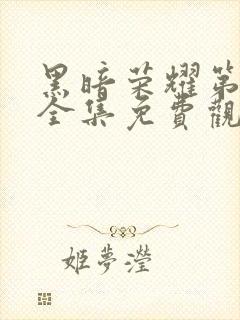 黑暗荣耀第
全集免費觀
姬夢瀅